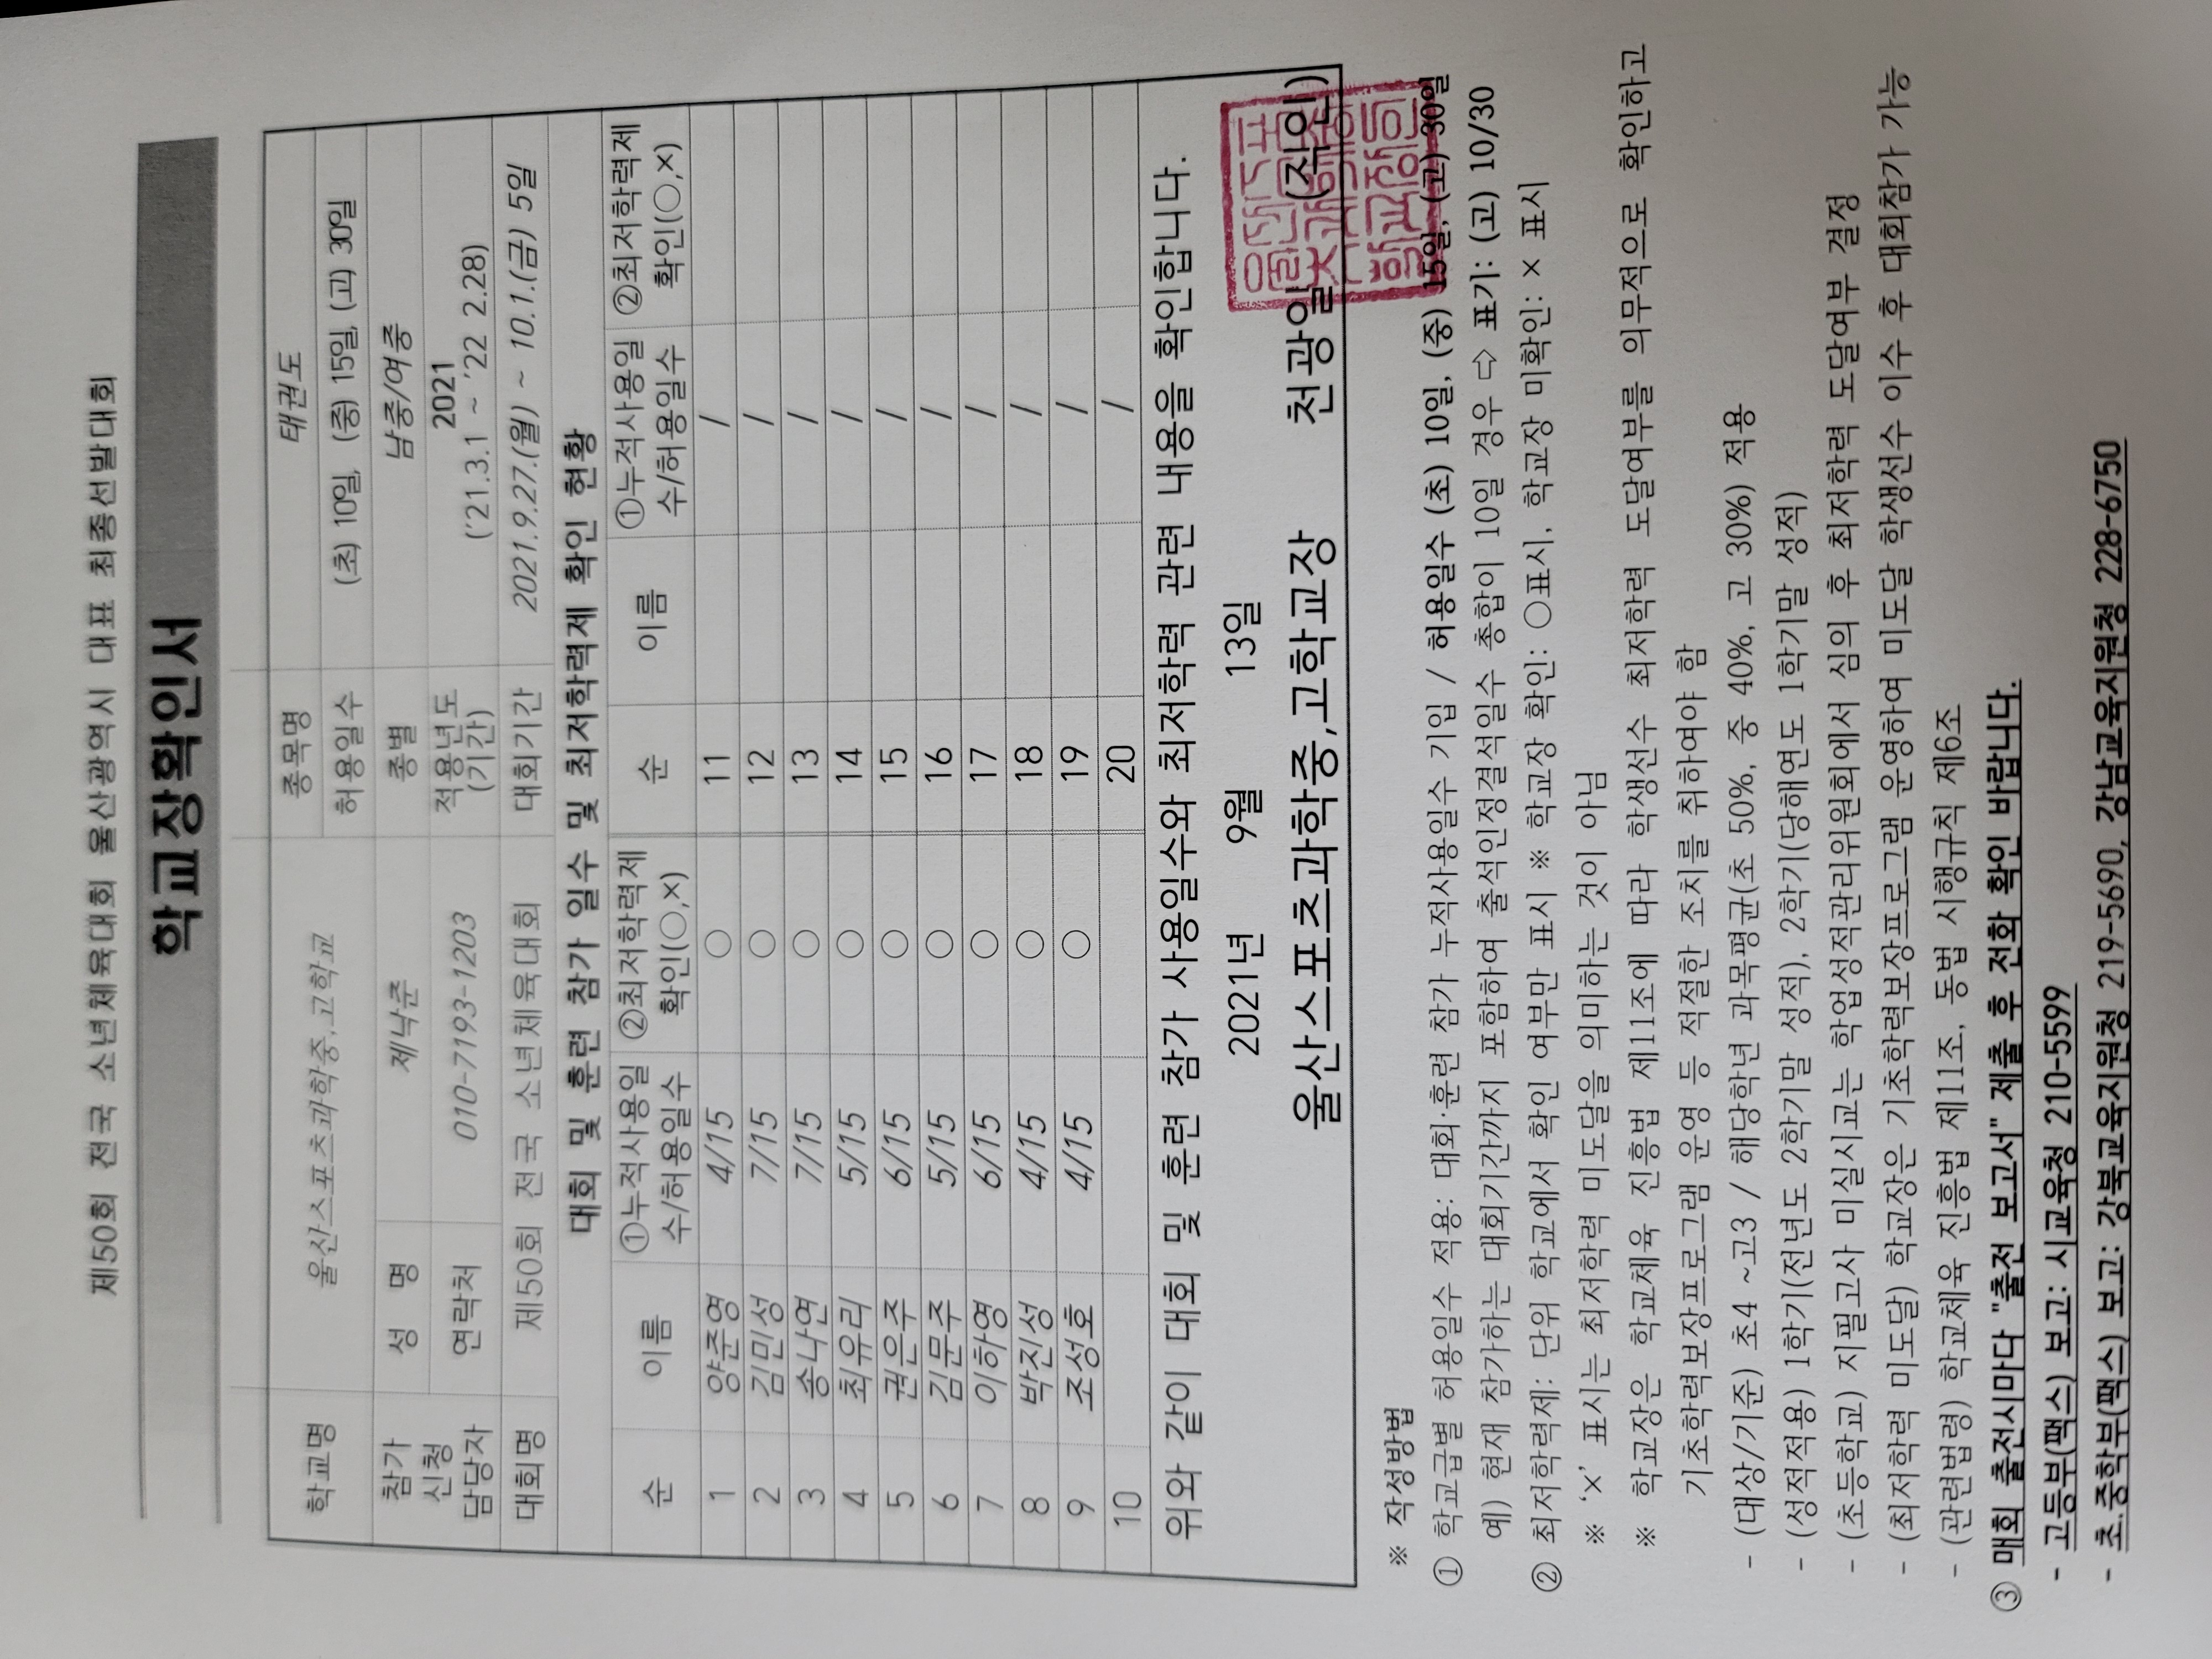 제50회 전국 소년체육대회 울산광역시 대표 최종선발대회
학교장확인서
학교명 울산스포츠과학중,고학교 종목명 태권도
허용일수 (초) 10일, (중) 15일, (고) 30일
참가 신청 담당자 성 명 제낙준 종별 남중/여중
연락처 010-7193-1203 적용년도 (기간) 2021 ('21.3.1 ~ '22 2.28)
대회명 제50회 전국 소년체육대회 대회기간 2021.9.27.(월) ~ 10.1.(금) 5일
대회 및 훈련 참가 일수 및 최저학력제 확인 현황
순 이름 ①누적사용일수/허용일수 ②최저학력제 확인(○,×) 순 이름 ①누적사용일수/허용일수 ②최저학력제 확인(○,×)
1 양준영 4/15 ○ 11 /
2 김민성 7/15 ○ 12 /
3 송나연 7/15 ○ 13 /
4 최유리 5/15 ○ 14 /
5 권은주 6/15 ○ 15 /
6 김문주 5/15 ○ 16 /
7 이하영 6/15 ○ 17 /
8 박진성 4/15 ○ 18 /
9 조성호 4/15 ○ 19 /
10 20 /
위와 같이 대회 및 훈련 참가 사용일수와 최저학력 관련 내용을 확인합니다.
2021년 9월 13일
울산스포츠과학중,고학교장 천광일 (직인)
※ 작성방법
① 학교급별 허용일수 적용: 대회·훈련 참가 누적사용일수 기입 / 허용일수 (초) 10일, (중) 15일, (고) 30일
예) 현재 참가하는 대회기간까지 포함하여 출석인정결석일수 총합이 10일 경우 ⇨ 표기: (고) 10/30
② 최저학력제: 단위 학교에서 확인 여부만 표시 ※ 학교장 확인: ○표시, 학교장 미확인: × 표시
※ '×' 표시는 최저학력 미도달을 의미하는 것이 아님
※ 학교장은 학교체육 진흥법 제11조에 따라 학생선수 최저학력 도달여부를 의무적으로 확인하고
기초학력보장프로그램 운영 등 적절한 조치를 취하여야 함
- (대상/기준) 초4 ~고3 / 해당학년 과목평균(초 50%, 중 40%, 고 30%) 적용
- (성적적용) 1학기(전년도 2학기말 성적), 2학기(당해연도 1학기말 성적)
- (초등학교) 지필고사 미실시교는 학업성적관리위원회에서 심의 후 최저학력 도달여부 결정
- (최저학력 미도달) 학교장은 기초학력보장프로그램 운영하여 미도달 학생선수 이수 후 대회참가 가능
- (관련법령) 학교체육 진흥법 제11조, 동법 시행규칙 제6조
③ 매회 출전시마다 "출전 보고서" 제출 후 전화 확인 바랍니다.
- 고등부(팩스) 보고: 시교육청 210-5599
- 초.중학부(팩스) 보고: 강북교육지원청 219-5690, 강남교육지원청 228-6750